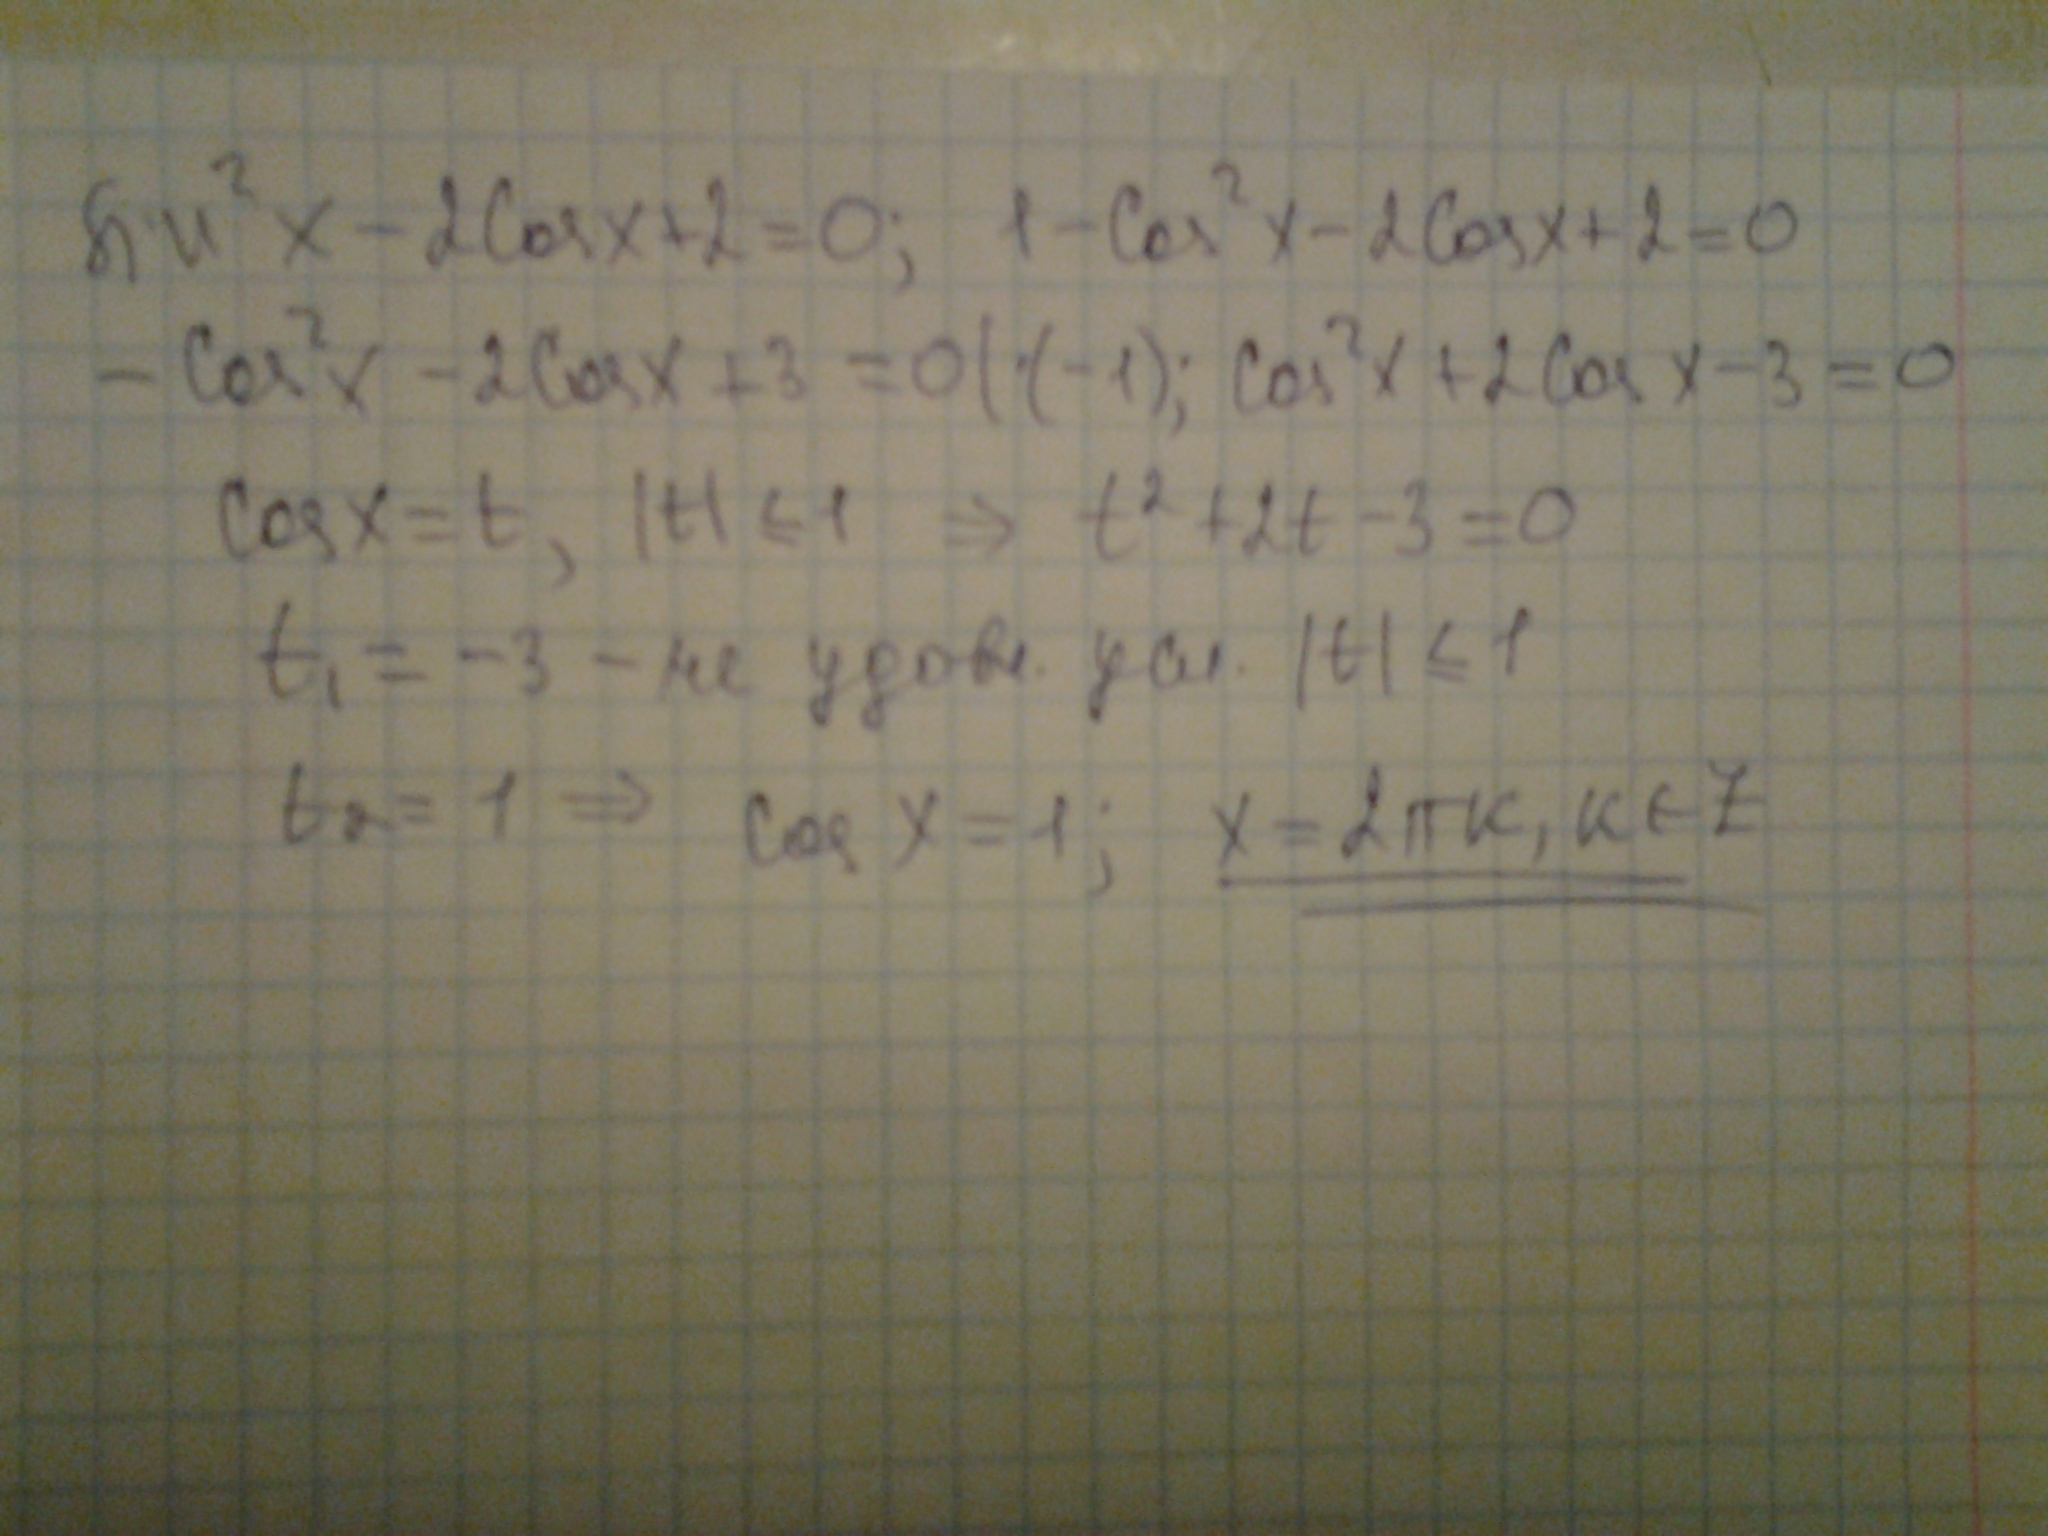 sin²x - 2cosx+2=0; 1-cos²x-2cosx+2=0
- cos²x - 2cosx + 3 = 0 |·(-1); cos²x +2cos x-3=0
cosx=t, |t| ≤ 1 ⇒ t²+2t-3=0
t₁ = -3 - не удовл. усл. |t| ≤ 1
t₂ = 1 ⇒ cos x = 1; x = 2πк, к∈Z